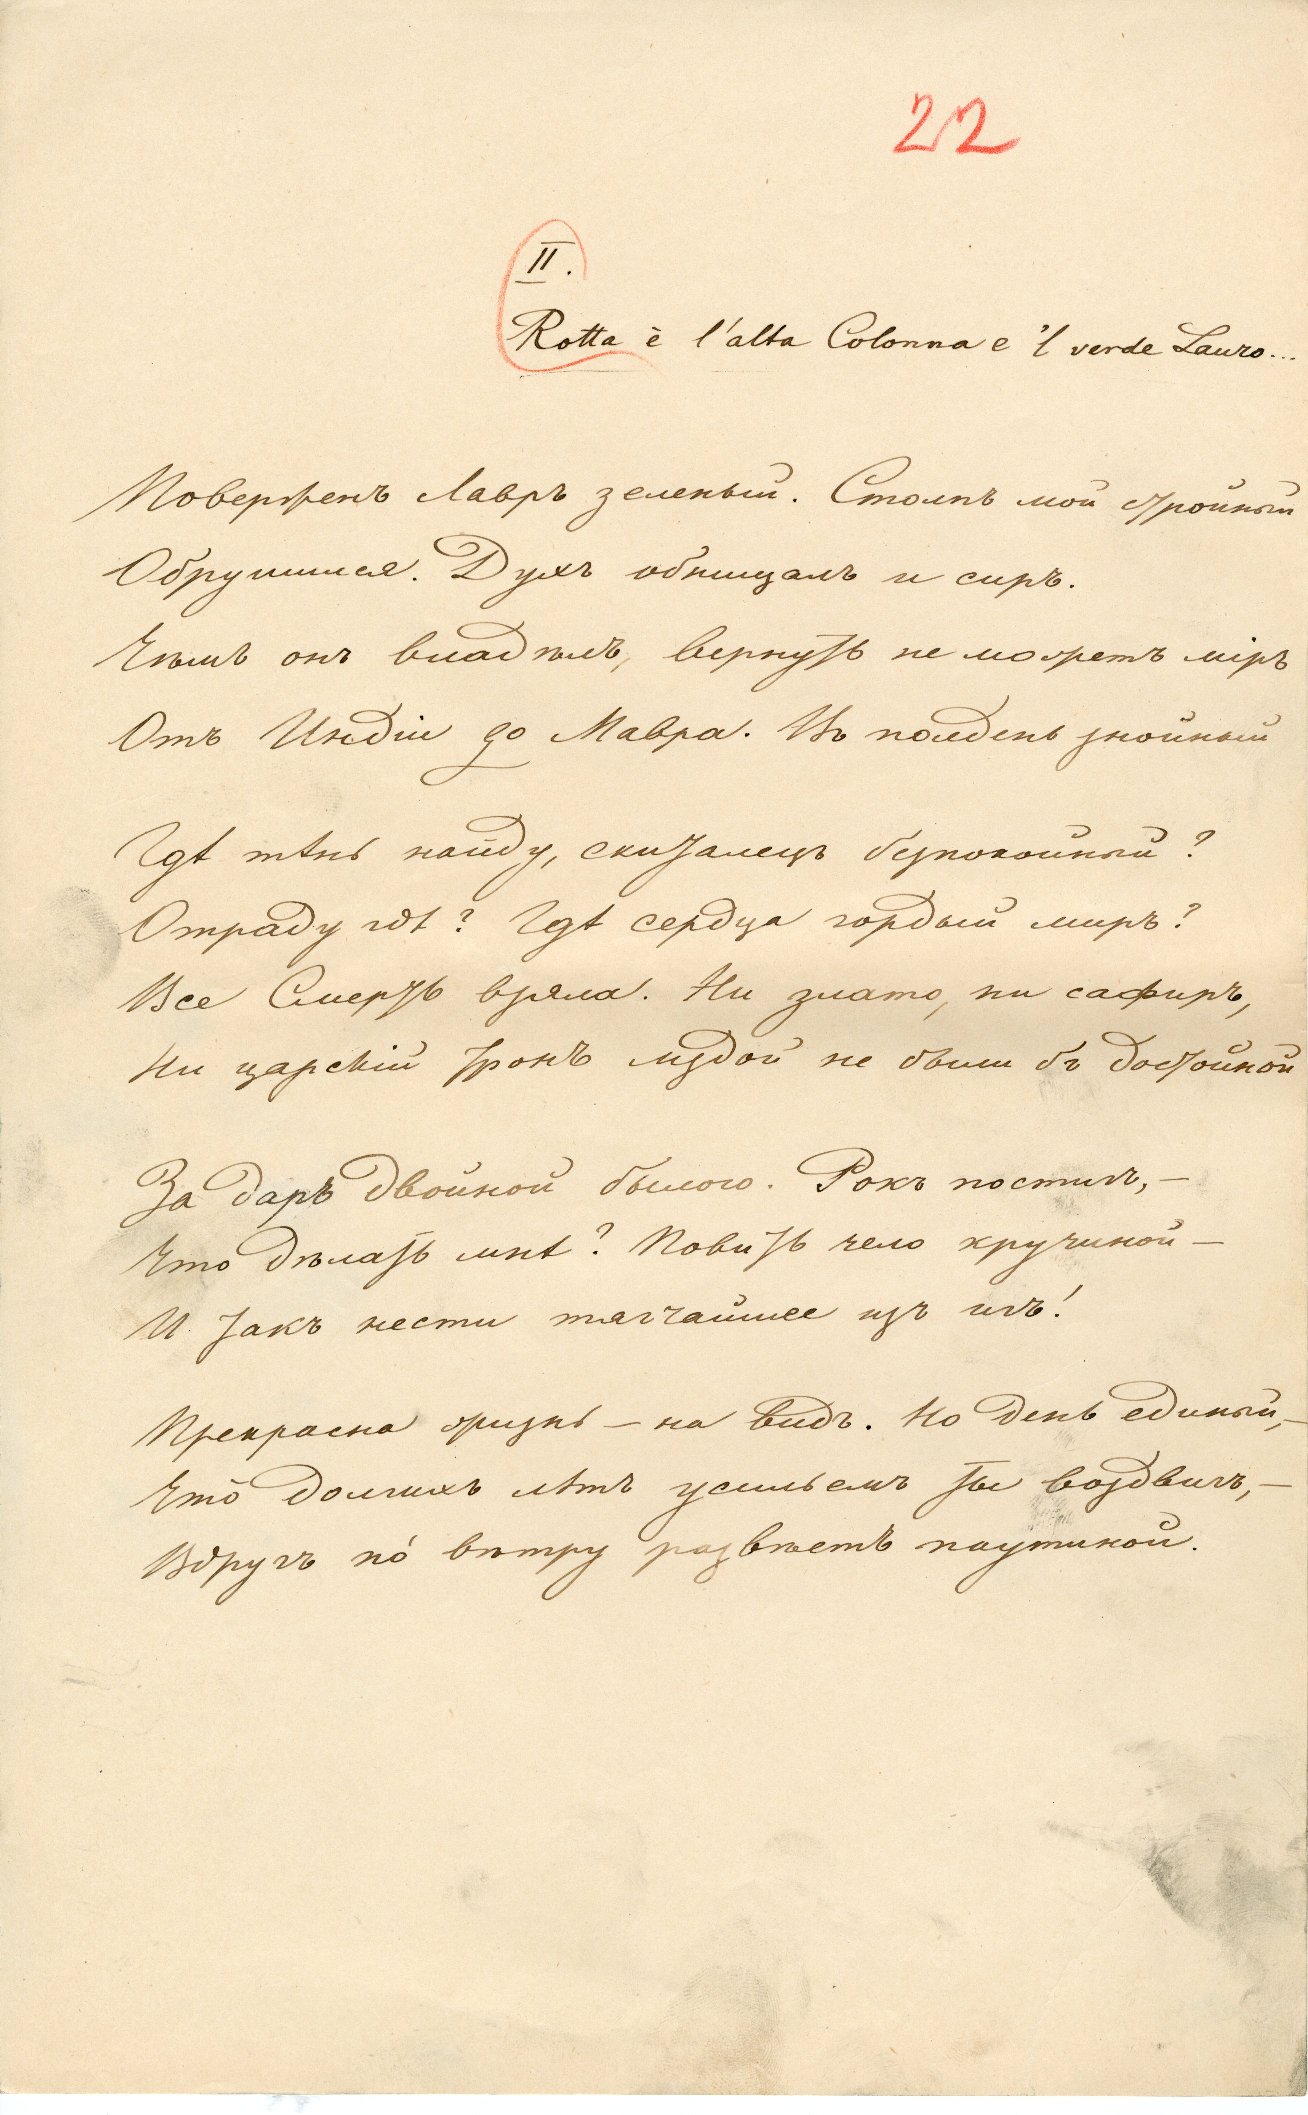 22
II.
Rotta è l'alta Colonna e 'l verde Lauro...
Поверженъ Лавръ зеленый. Столпъ мой стройный
Обрушился. Духъ обнищалъ и сиръ.
Чѣмъ онъ владѣлъ, вернуть не можетъ міръ
Отъ Индіи до Мавра. Въ полдень знойный
Гдѣ тѣнь найду, скиталецъ безпокойный?
Отраду гдѣ? Гдѣ сердца гордый миръ?
Все Смерть взяла. Ни злато, ни сафиръ,
Ни царскій тронъ мздой не были бъ достойной
За даръ двойной былого. Рокъ постигъ,—
Что дѣлать мнѣ? Повить чело кручиной—
И такъ нести тягчайшее изъ игъ!
Прекрасна жизнь — на видъ. Но день единый,—
Что́ долгихъ лѣтъ усильемъ ты воздвигъ,—
Вдругъ по́ вѣтру развѣетъ паутиной.